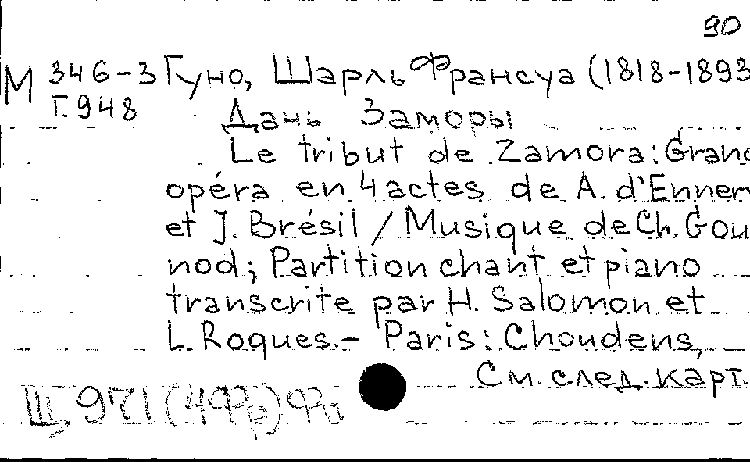 90
М 346-3 Гуно, Шарль Франсуа (1818-1893
Г.948 Дань Заморы
Le tribut de Zamora: Grand
opéra en 4 actes de A. d'Enner
et J. Brésil / Musique de Ch. Gou
nod; Partition chant et piano
transcrite par H. Salomon et
L. Roques.- Paris: Choudens,
См. след. карт.